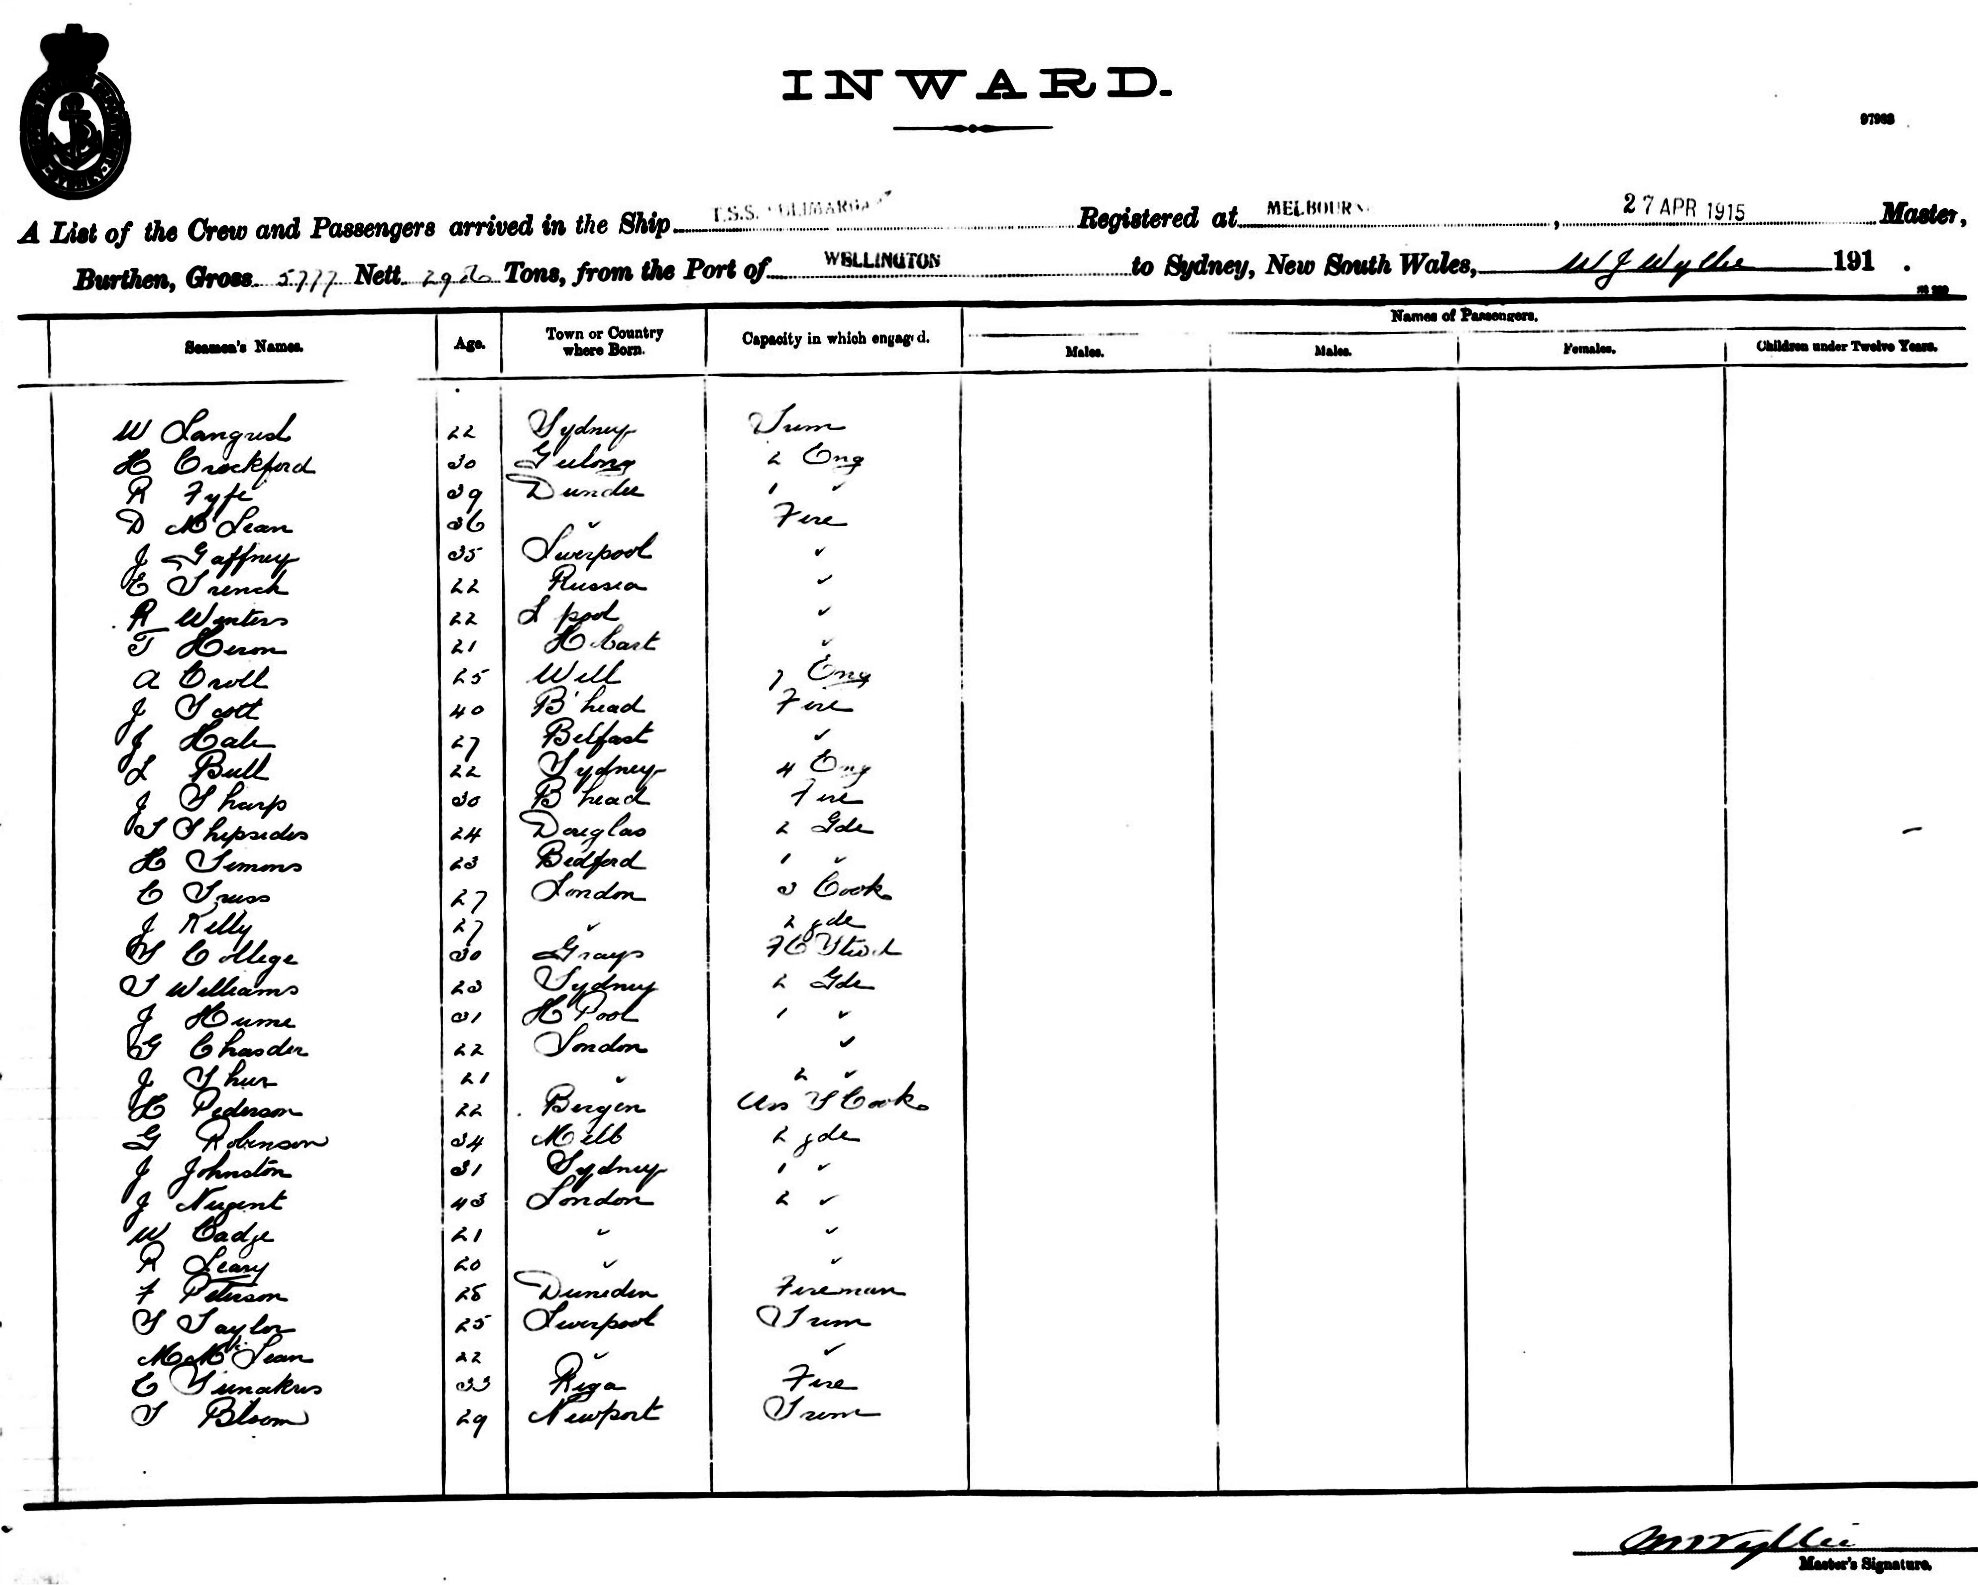 INWARD.
97963
A List of the Crew and Passengers arrived in the Ship T.S.S. Registered at MELBOURN , 27 APR 1915 Master,
Burthen, Gross 5777 Nett Tons, from the Port of WELLINGTON to Sydney, New South Wales, W J Wyllie 191 .
Seamen's Names. Age. Town or Country where Born. Capacity in which engaged. Names of Passengers.
Males. Males. Females. Children under Twelve Years.
W Langush 22 Sydney Trim
H Crockford 30 Geelong 2 Eng
R Fyfe 39 Dundee 1 "
D McLean 36 " Fire
J Gaffney 35 Liverpool "
E Trench 22 Russia "
R Winters 22 L pool "
T Heron 21 Hobart "
A Croll 25 Well 7 Eng
J Scott 40 B'head Fire
J Hale 27 Belfast "
L Bull 22 Sydney 4 Eng
J Sharp 30 B head Fire
T Shepsides 24 Douglas 2 Gde
H Simons 23 Bedford 1 "
C Truss 27 London 3 Cook
J Kelly 27 " 2 gde
S College 30 Grays
T Williams 23 Sydney 2 Gde
J Hume 31 H Pool 1 "
G Chasder 22 London "
J Shur 21 " 2 "
H Pederson 22 Bergen Ass S Cook
G Robinson 34 Melb 2 gde
J Johnston 31 Sydney 1 "
J Nugent 43 London 2 "
W Cadge 21 " "
R Leary 20 " "
F Peterson 28 Dunedin Fireman
S Taylor 25 Liverpool Trim
M McLean 22 " "
C 33 Riga Fire
S Bloom 29 Newport Trim
Master's Signature.